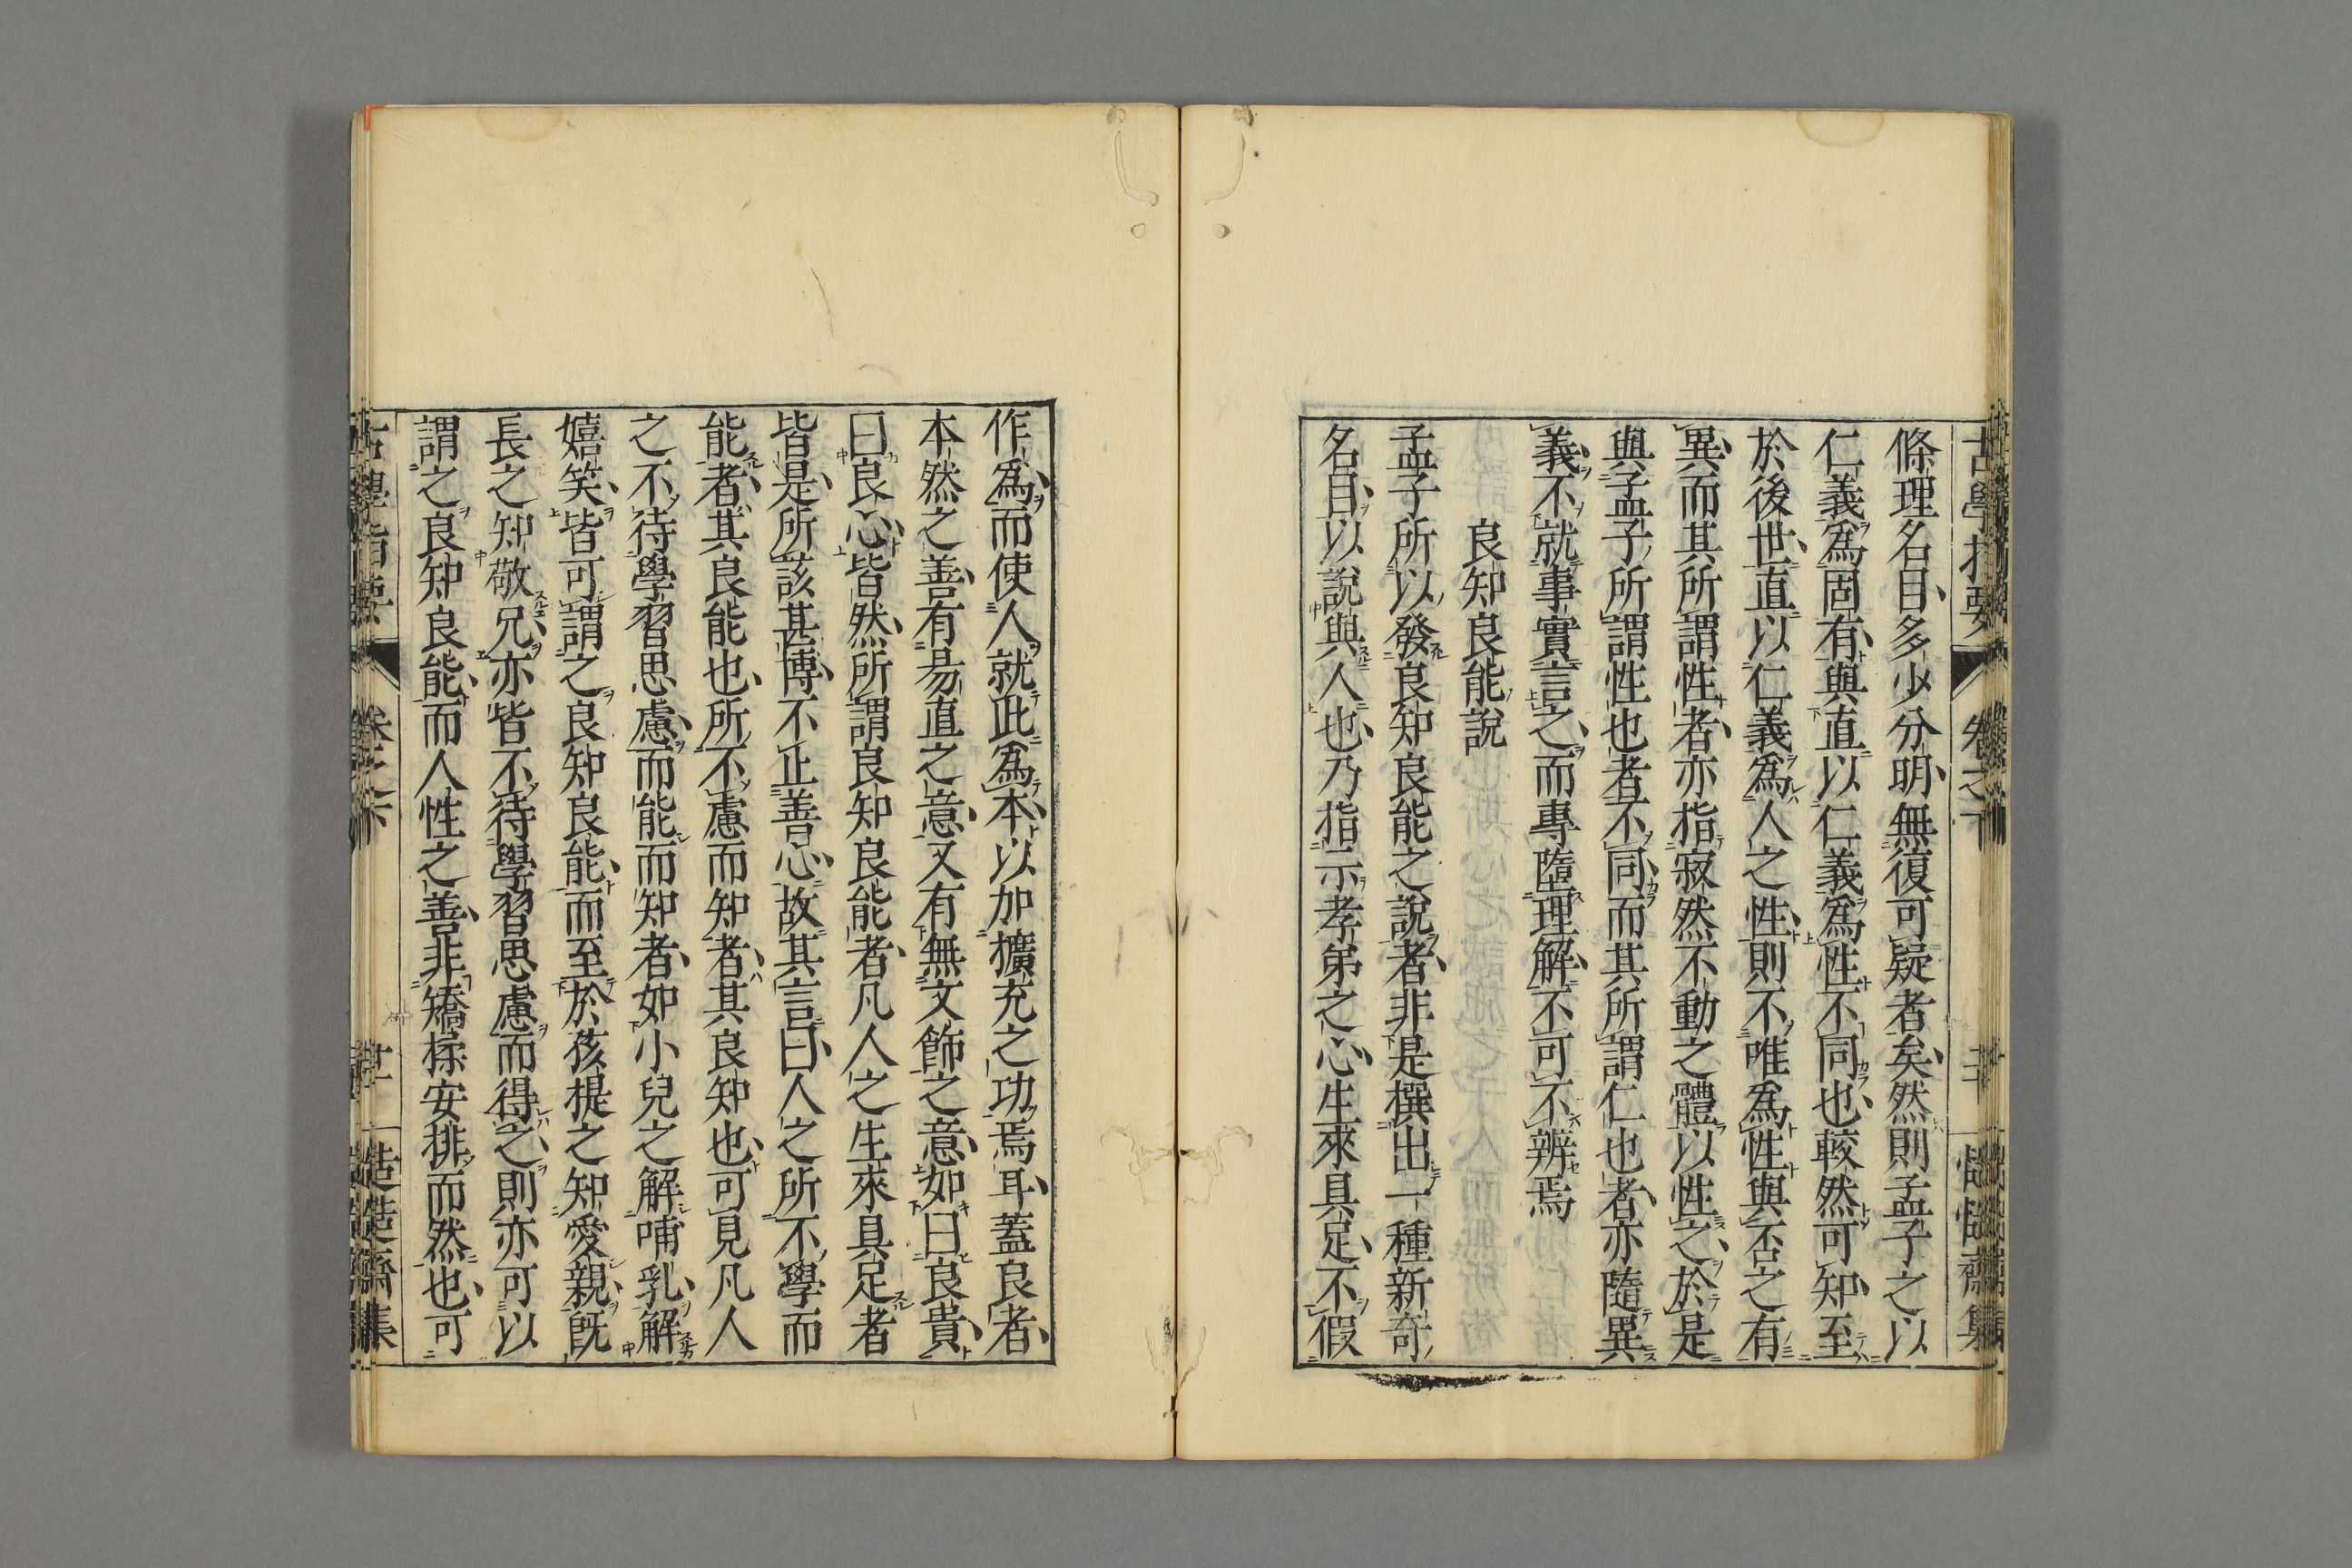 條理名目多少分明無復可疑者矣然則孟子之以
仁義爲固有與直以仁義爲性不同也較然可知至
於後世直以仁義爲人之性則不唯爲性與否之有
異而其所謂性者亦指寂然不動之體以性之於是
與孟子所謂性也者不同而其所謂仁也者亦隨異
義不就事實言之而專墮理解不可不辨焉
良知良能說
孟子所以發良知良能之說者非是撰出一種新奇
名目以說與人也乃指示孝弟之心生來具足不假
作爲而使人就此爲本以加擴充之功焉耳蓋良者
本然之善有易直之意又有無文飾之意如曰良貴
曰良心皆然所謂良知良能者凡人之生來具足者
皆是所該甚博不止善心故其言曰人之所不學而
能者其良能也所不慮而知者其良知也可見凡人
之不待學習思慮而能而知者如小兒之解哺乳解
嬉笑皆可謂之良知良能而至於孩提之知愛親旣
長之知敬兄亦皆不待學習思慮而得之則亦可以
謂之良知良能而人性之善非矯揉安排而然也可